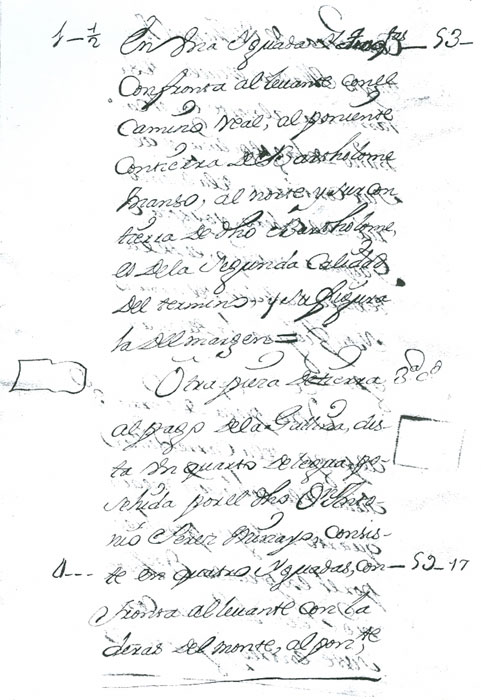 1-½ En Una Yguada 53-
Confronta al levante con el
Camino Real, al poniente
con tierra de Bartholome
al norte y sur con
tierra de dho Bartholome,
es de la Segunda Calidad
del termino y su figura
la del margen =
Otra pieza de tierra
al pago de la dis-
ta Un quarto de legua po-
sehida por el dho Antto-
nio Perez consis-
4--- te en quatro Yguadas, con- 52-17
fronta al levante con la
deras del monte, al pon.te